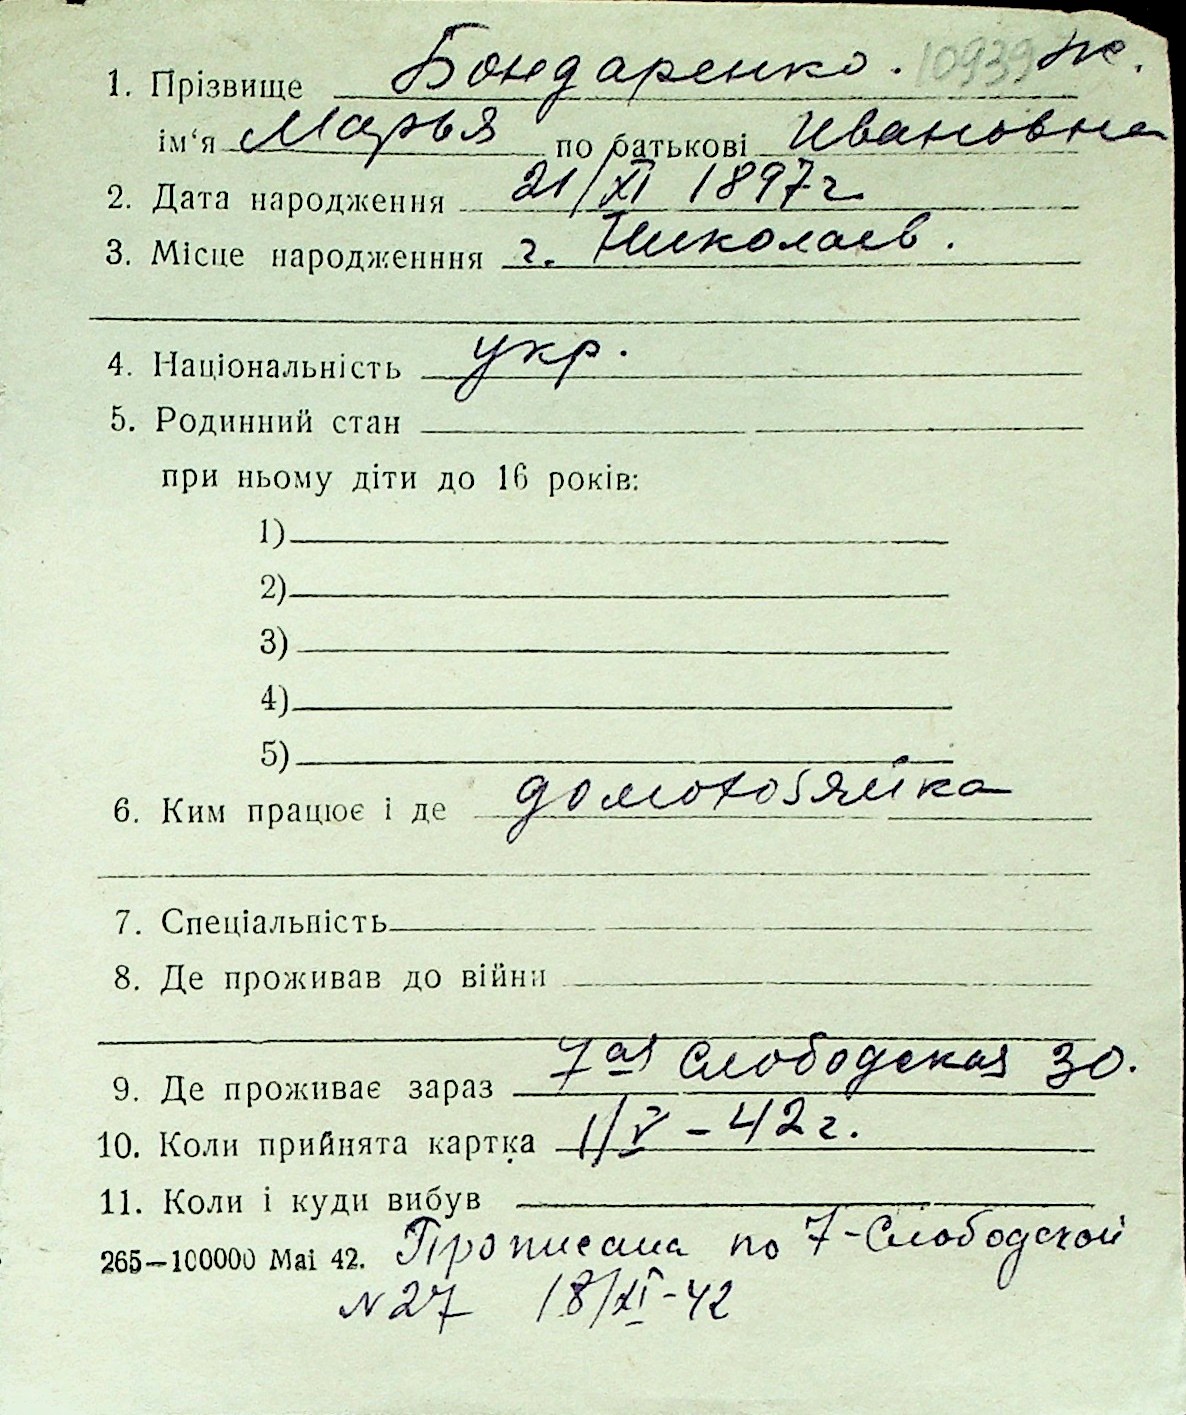 1. Прізвище Бондаренко. 10939 ж.
ім‘я Марья по батькові Ивановна
2. Дата народження 21/XI 1897 г
3. Місце народженння г. Николаев.
4. Національність укр.
5. Родинний стан
при ньому діти до 16 років:
1)
2)
3)
4)
5)
6. Ким працює і де домохозяйка
7. Спеціальність
8. Де проживав до війни
9. Де проживає зараз 7ая Слободская 30.
10. Коли прийнята картка 1/V – 42 г.
11. Коли і куди вибув
265—100000 Mai 42. Прописана по 7-Слободской
N 27 18/XI-42